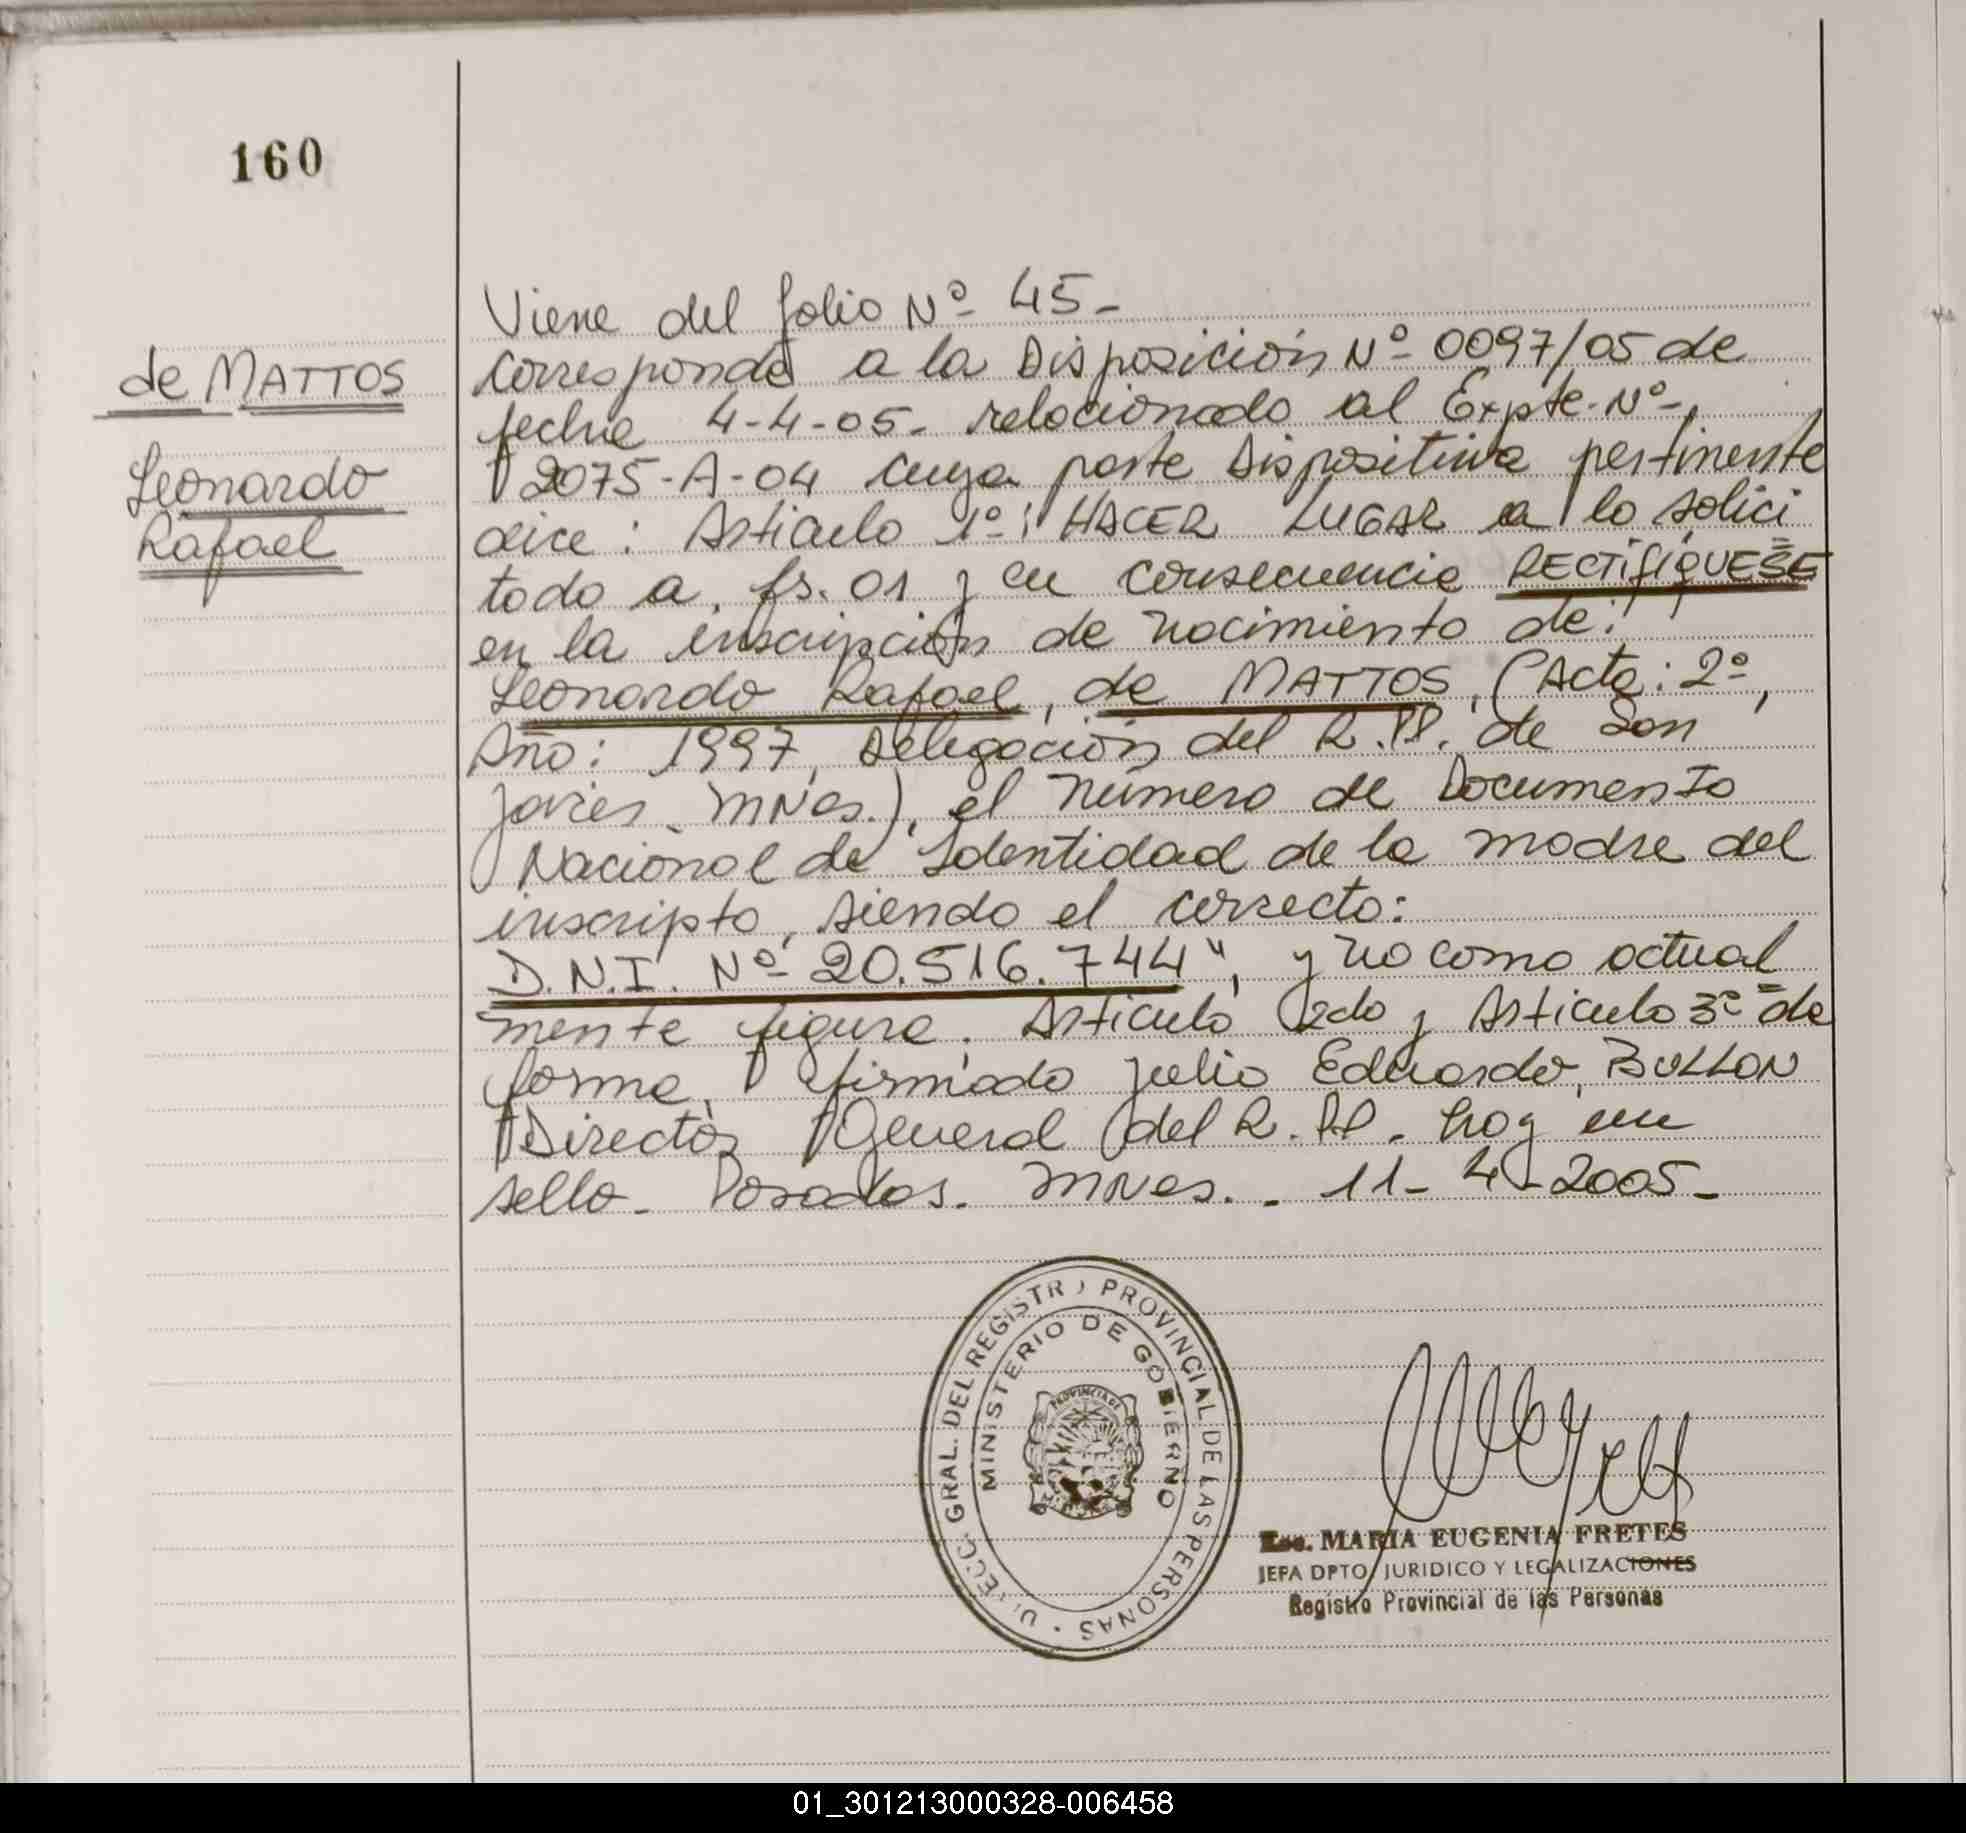 160
de MATTOS
Leonardo
Rafael
Viene del folio Nº 45-
Corresponde a la Disposición Nº 0097/05 de
fecha 4-4-05- relacionado al Expte. Nº
2075-A-04 cuya parte Dispositiva pertinente
dice: Artículo 1º: HACER LUGAR a lo solici
tado a fs. 01 y en consecuencia RECTIFIQUESE
en la inscripción de nacimiento de:
Leonardo Rafael, de MATTOS, (Acta: 2º,
Año: 1997, Delegación del R.PP. de San
Javier. MNes.), el número de Documento
Nacional de Identidad de la madre del
inscripto, siendo el correcto:
D.N.I. Nº 20.516.744", y no como actual
mente figura. Artículo 2do y Artículo 3º de
forma, firmado Julio Eduardo, BULLON
Director General del R.PP. hay un
sello- Posadas. MNes.- 11-4-2005-
DIRECC. GRAL. DEL REGISTRO PROVINCIAL DE LAS PERSONAS
MINISTERIO DE GOBIERNO
PROVINCIA DE
Esc. MARIA EUGENIA FRETES
JEFA DPTO JURIDICO Y LEGALIZACIONES
Registro Provincial de las Personas
01_301213000328-006458